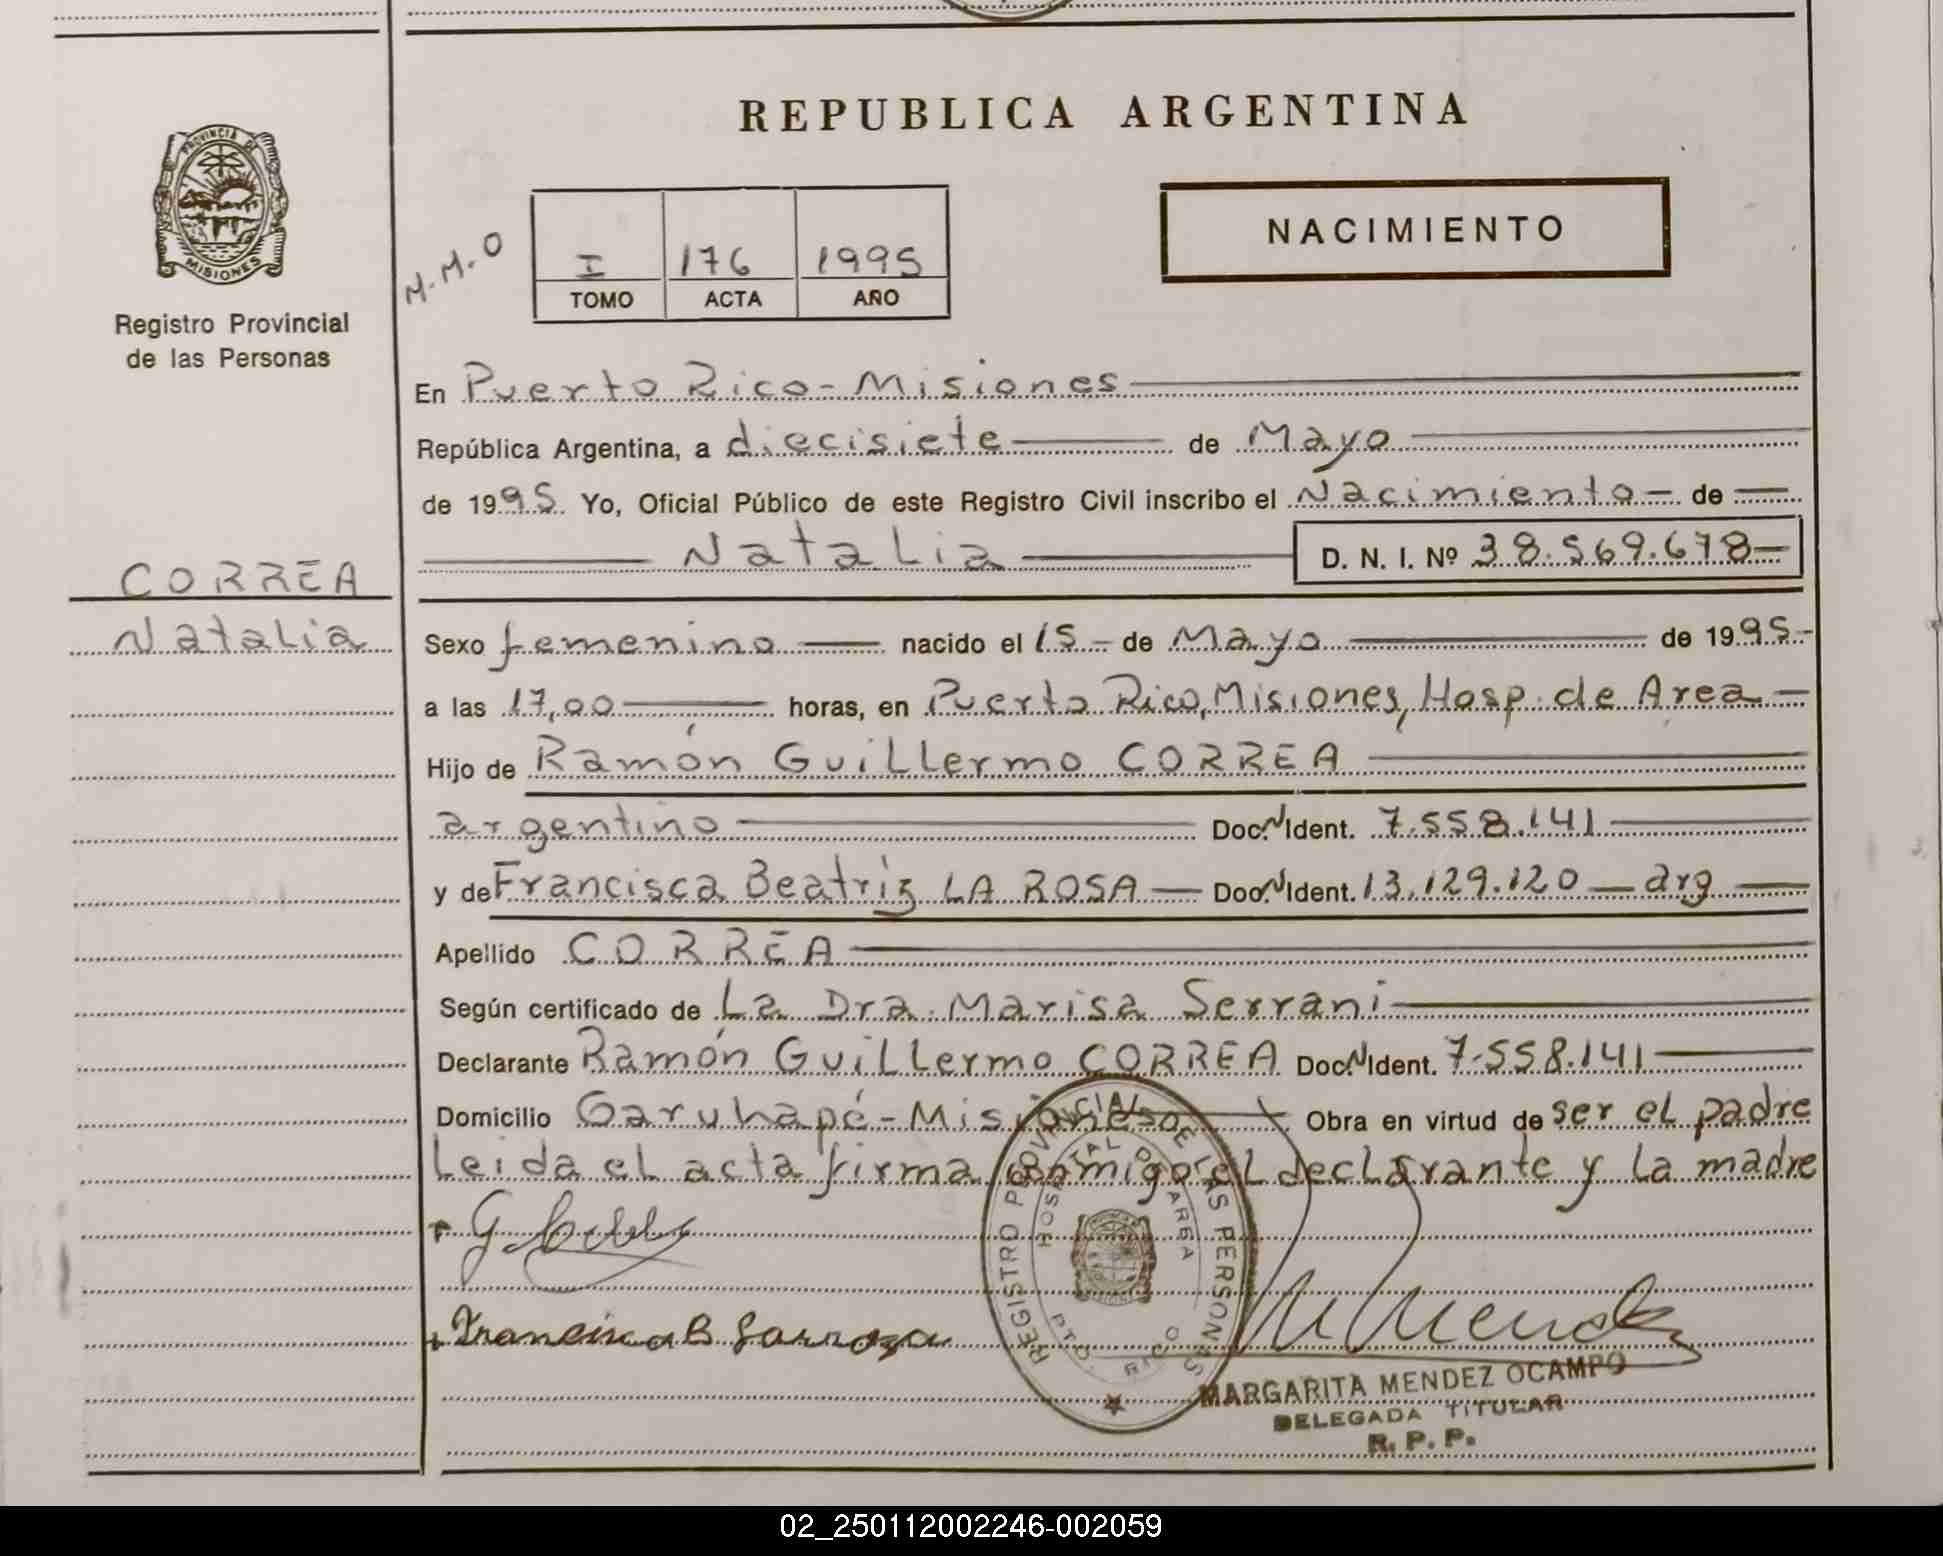 REPUBLICA ARGENTINA
PROVINCIA DE
MISIONES
Registro Provincial
de las Personas
M.M.O
I 176 1995
TOMO ACTA AÑO
NACIMIENTO
En Puerto Rico - Misiones
República Argentina, a diecisiete de Mayo
de 1995 Yo, Oficial Público de este Registro Civil inscribo el Nacimiento - de
Natalia D. N. I. Nº 38.569.678
CORREA
Natalia
Sexo femenino nacido el 15 - de Mayo de 1995-
a las 17,00 horas, en Puerto Rico, Misiones, Hosp. de Area
Hijo de Ramón Guillermo CORREA
argentino Doc. N Ident. 7.558.141
y de Francisca Beatríz LA ROSA Doc. N Ident. 13.129.120 arg
Apellido CORREA
Según certificado de La Dra. Marisa Serrani
Declarante Ramón Guillermo CORREA Doc. N Ident. 7.558.141
Domicilio Garuhapé - Misiones Obra en virtud de ser el padre
Leida el acta firma conmigo el declarante y la madre
REGISTRO PROVINCIAL DE LAS PERSONAS
HOSPITAL DE AREA
PTO. RICO
Francisca B
M Mendez
MARGARITA MENDEZ OCAMPO
DELEGADA TITULAR
R. P. P.
02_250112002246-002059